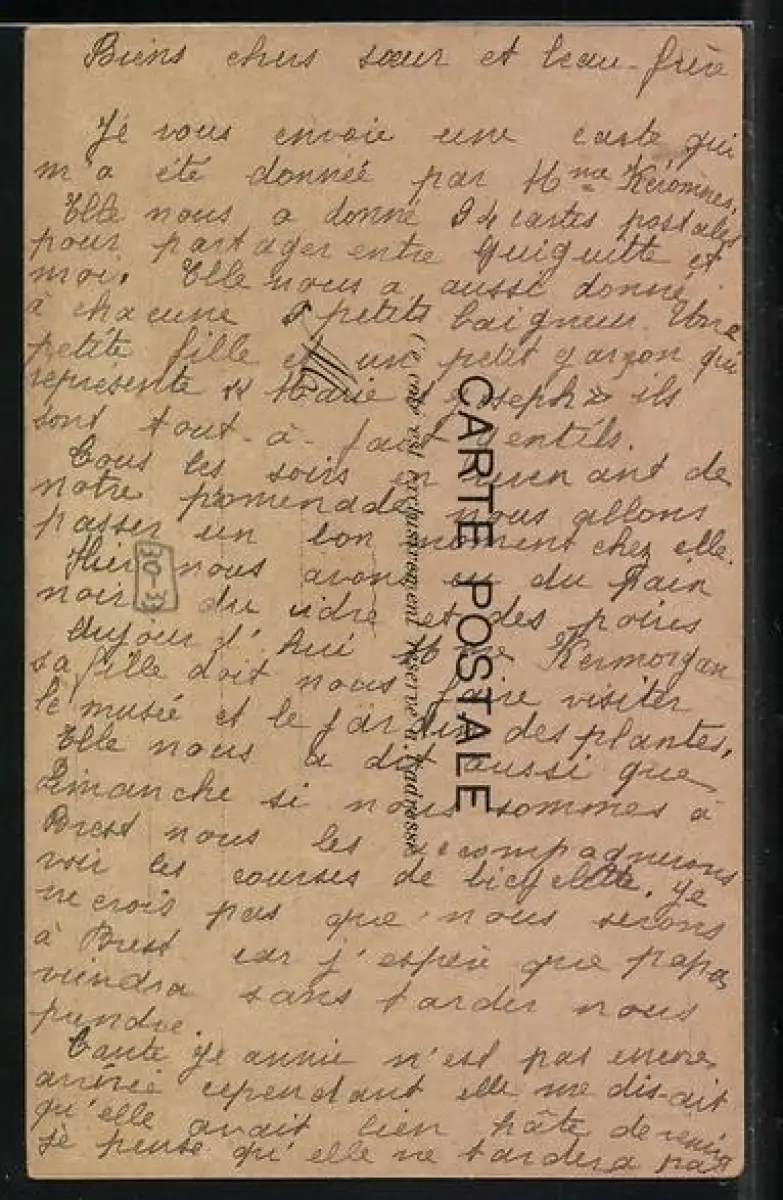 Biens chers sœur et beau-frère
Je vous envoie une carte qui
m'a été donnée par Mme Keromnes.
Elle nous a donné 94 cartes postales
pour partager entre Guiguitte et
moi. Elle nous a aussi donné
à chacune petits baigneur. Une
petite fille et un petit garçon qui
représente « Marie & Joseph » ils
sont tout-à-fait gentils.
Tous les soirs en revenant de
notre promenade nous allons
passer un bon moment chez elle.
Hier nous avons eu du pain
noir du cidre et des poires
Aujour d'hui Mme Kermorgan
sa fille doit nous faire visiter
le musée et le jardin des plantes.
Elle nous a dit aussi que
Dimanche si nous sommes à
Brest nous les accompagnerons
voir les courses de bicyclette. Je
ne crois pas que nous serons
à Brest car j'espère que papa
viendra sans tarder nous
prendre.
Tante Jeannie n'est pas encore
arrivée cependant elle me disait
qu'elle avait bien hâte de venir
je pense qu'elle ne tardera pas
CARTE POSTALE
Ce côté est exclusivement réservé à l'adresse